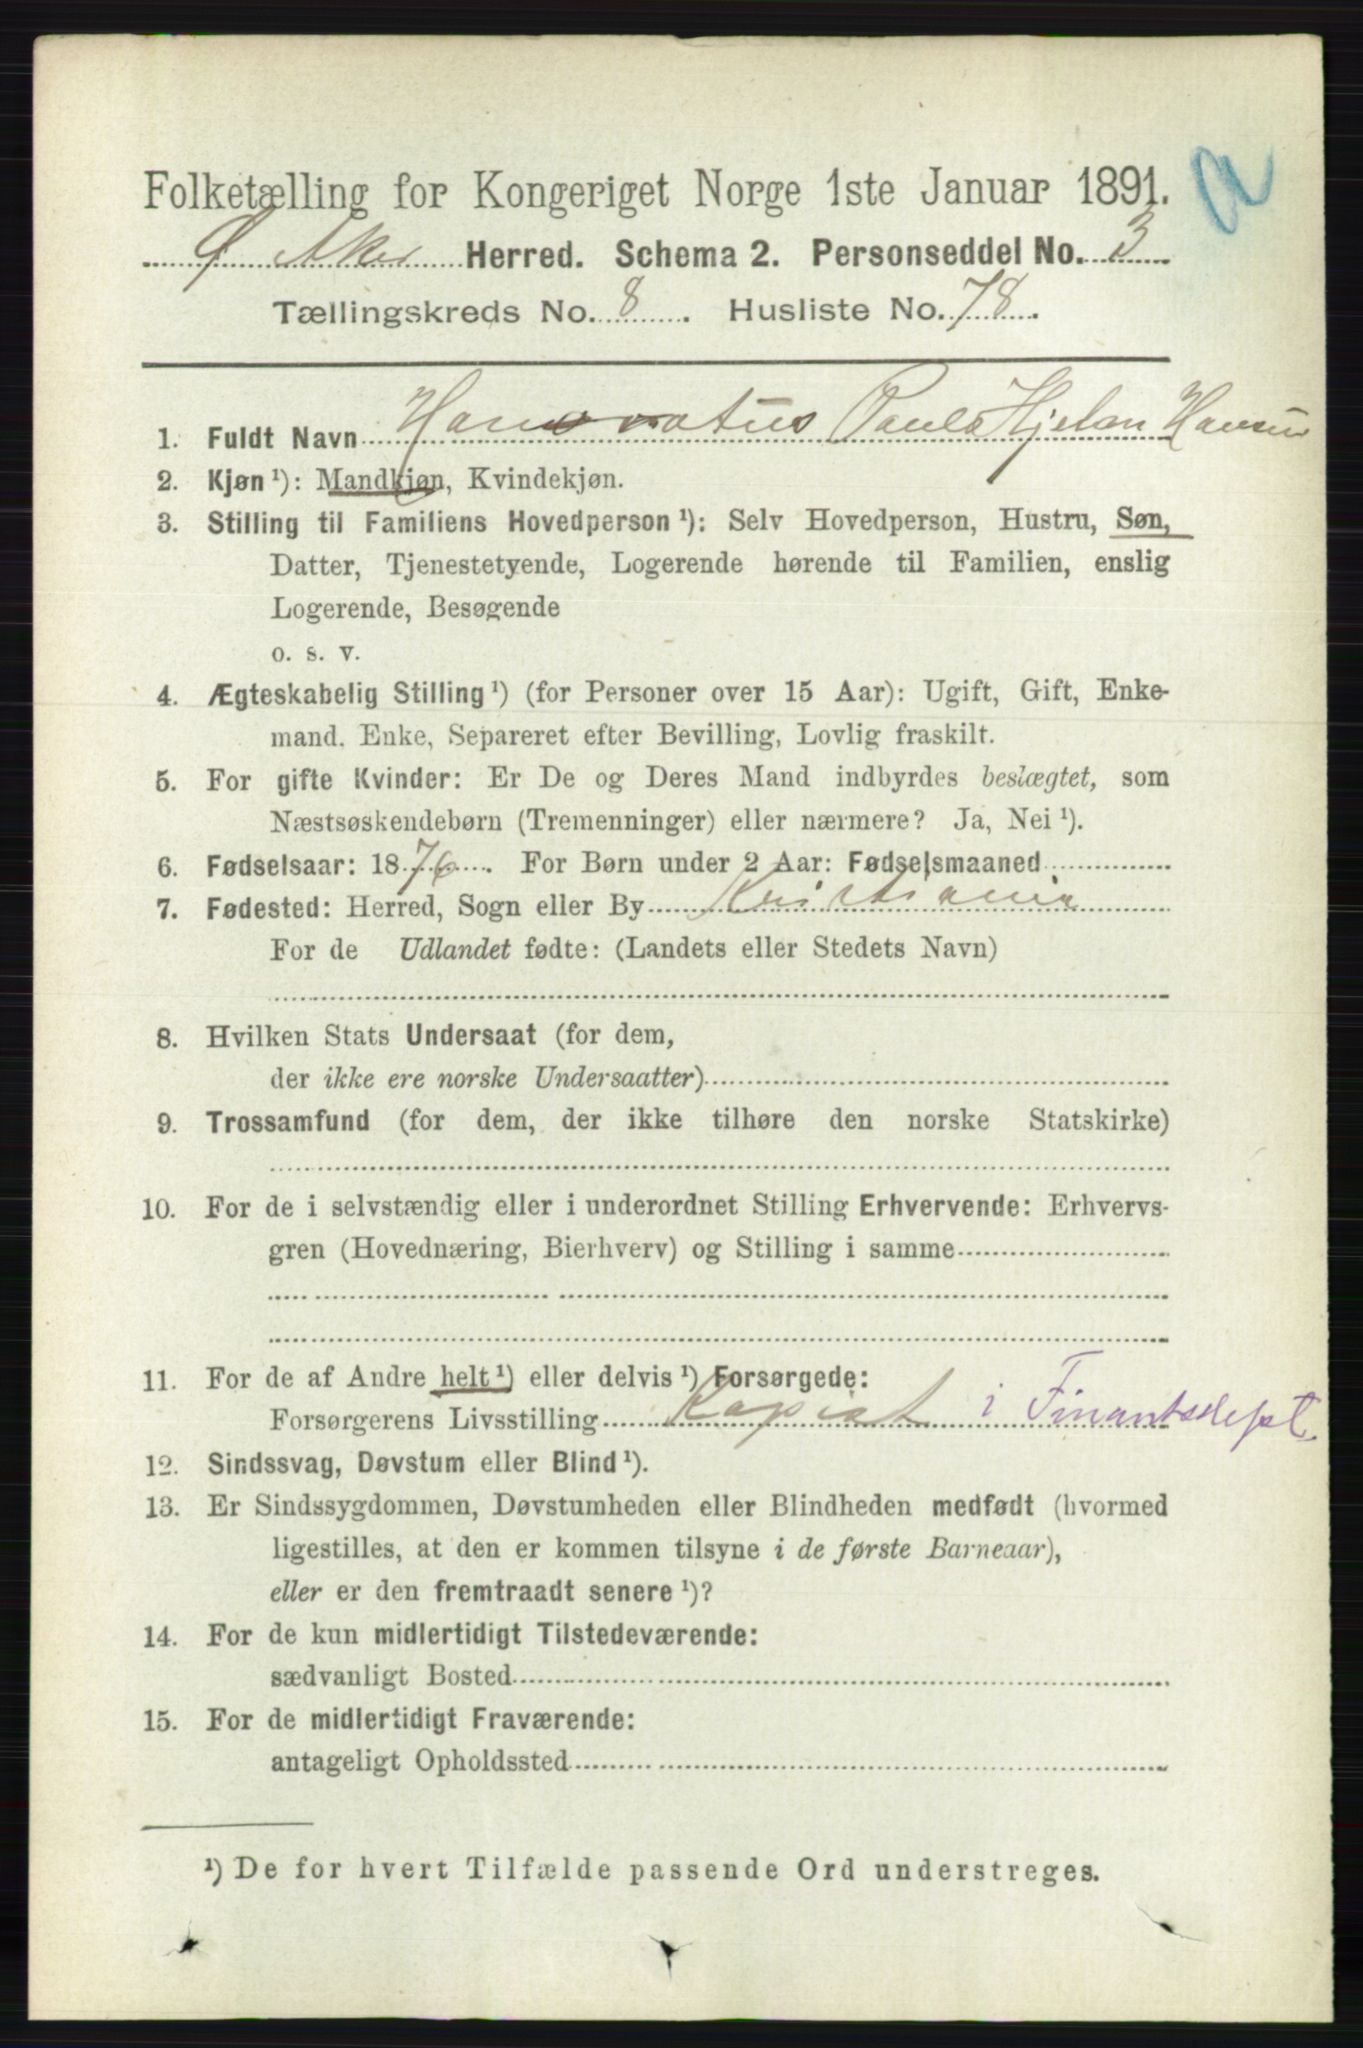 a
Folketælling for Kongeriget Norge 1ste Januar 1891.
Ø. Aker Herred. Schema 2. Personseddel No. 3
Tællingskreds No. 8. Husliste No. 78.
1. Fuldt Navn Honoratus Paulo Hjelm Hansen
2. Kjøn ¹): Mandkjøn, Kvindekjøn.
3. Stilling til Familiens Hovedperson ¹): Selv Hovedperson, Hustru, Søn,
Datter, Tjenestetyende, Logerende hørende til Familien, enslig
Logerende, Besøgende
o. s. v.
4. Ægteskabelig Stilling ¹) (for Personer over 15 Aar): Ugift, Gift, Enke-
mand, Enke, Separeret efter Bevilling, Lovlig fraskilt.
5. For gifte Kvinder: Er De og Deres Mand indbyrdes beslægtet, som
Næstsøskendebørn (Tremenninger) eller nærmere? Ja, Nei ¹).
6. Fødselsaar: 1876. For Børn under 2 Aar: Fødselsmaaned
7. Fødested: Herred, Sogn eller By Kristiania
For de Udlandet fødte: (Landets eller Stedets Navn)
8. Hvilken Stats Undersaat (for dem,
der ikke ere norske Undersaatter)
9. Trossamfund (for dem, der ikke tilhøre den norske Statskirke)
10. For de i selvstændig eller i underordnet Stilling Erhvervende: Erhvervs-
gren (Hovednæring, Bierhverv) og Stilling i samme
11. For de af Andre helt ¹) eller delvis ¹) Forsørgede:
Forsørgerens Livsstilling Kopist i Finantsdept.
12. Sindssvag, Døvstum eller Blind ¹).
13. Er Sindssygdommen, Døvstumheden eller Blindheden medfødt (hvormed
ligestilles, at den er kommen tilsyne i de første Barneaar),
eller er den fremtraadt senere ¹)?
14. For de kun midlertidigt Tilstedeværende:
sædvanligt Bosted
15. For de midlertidigt Fraværende:
antageligt Opholdssted
¹) De for hvert Tilfælde passende Ord understreges.